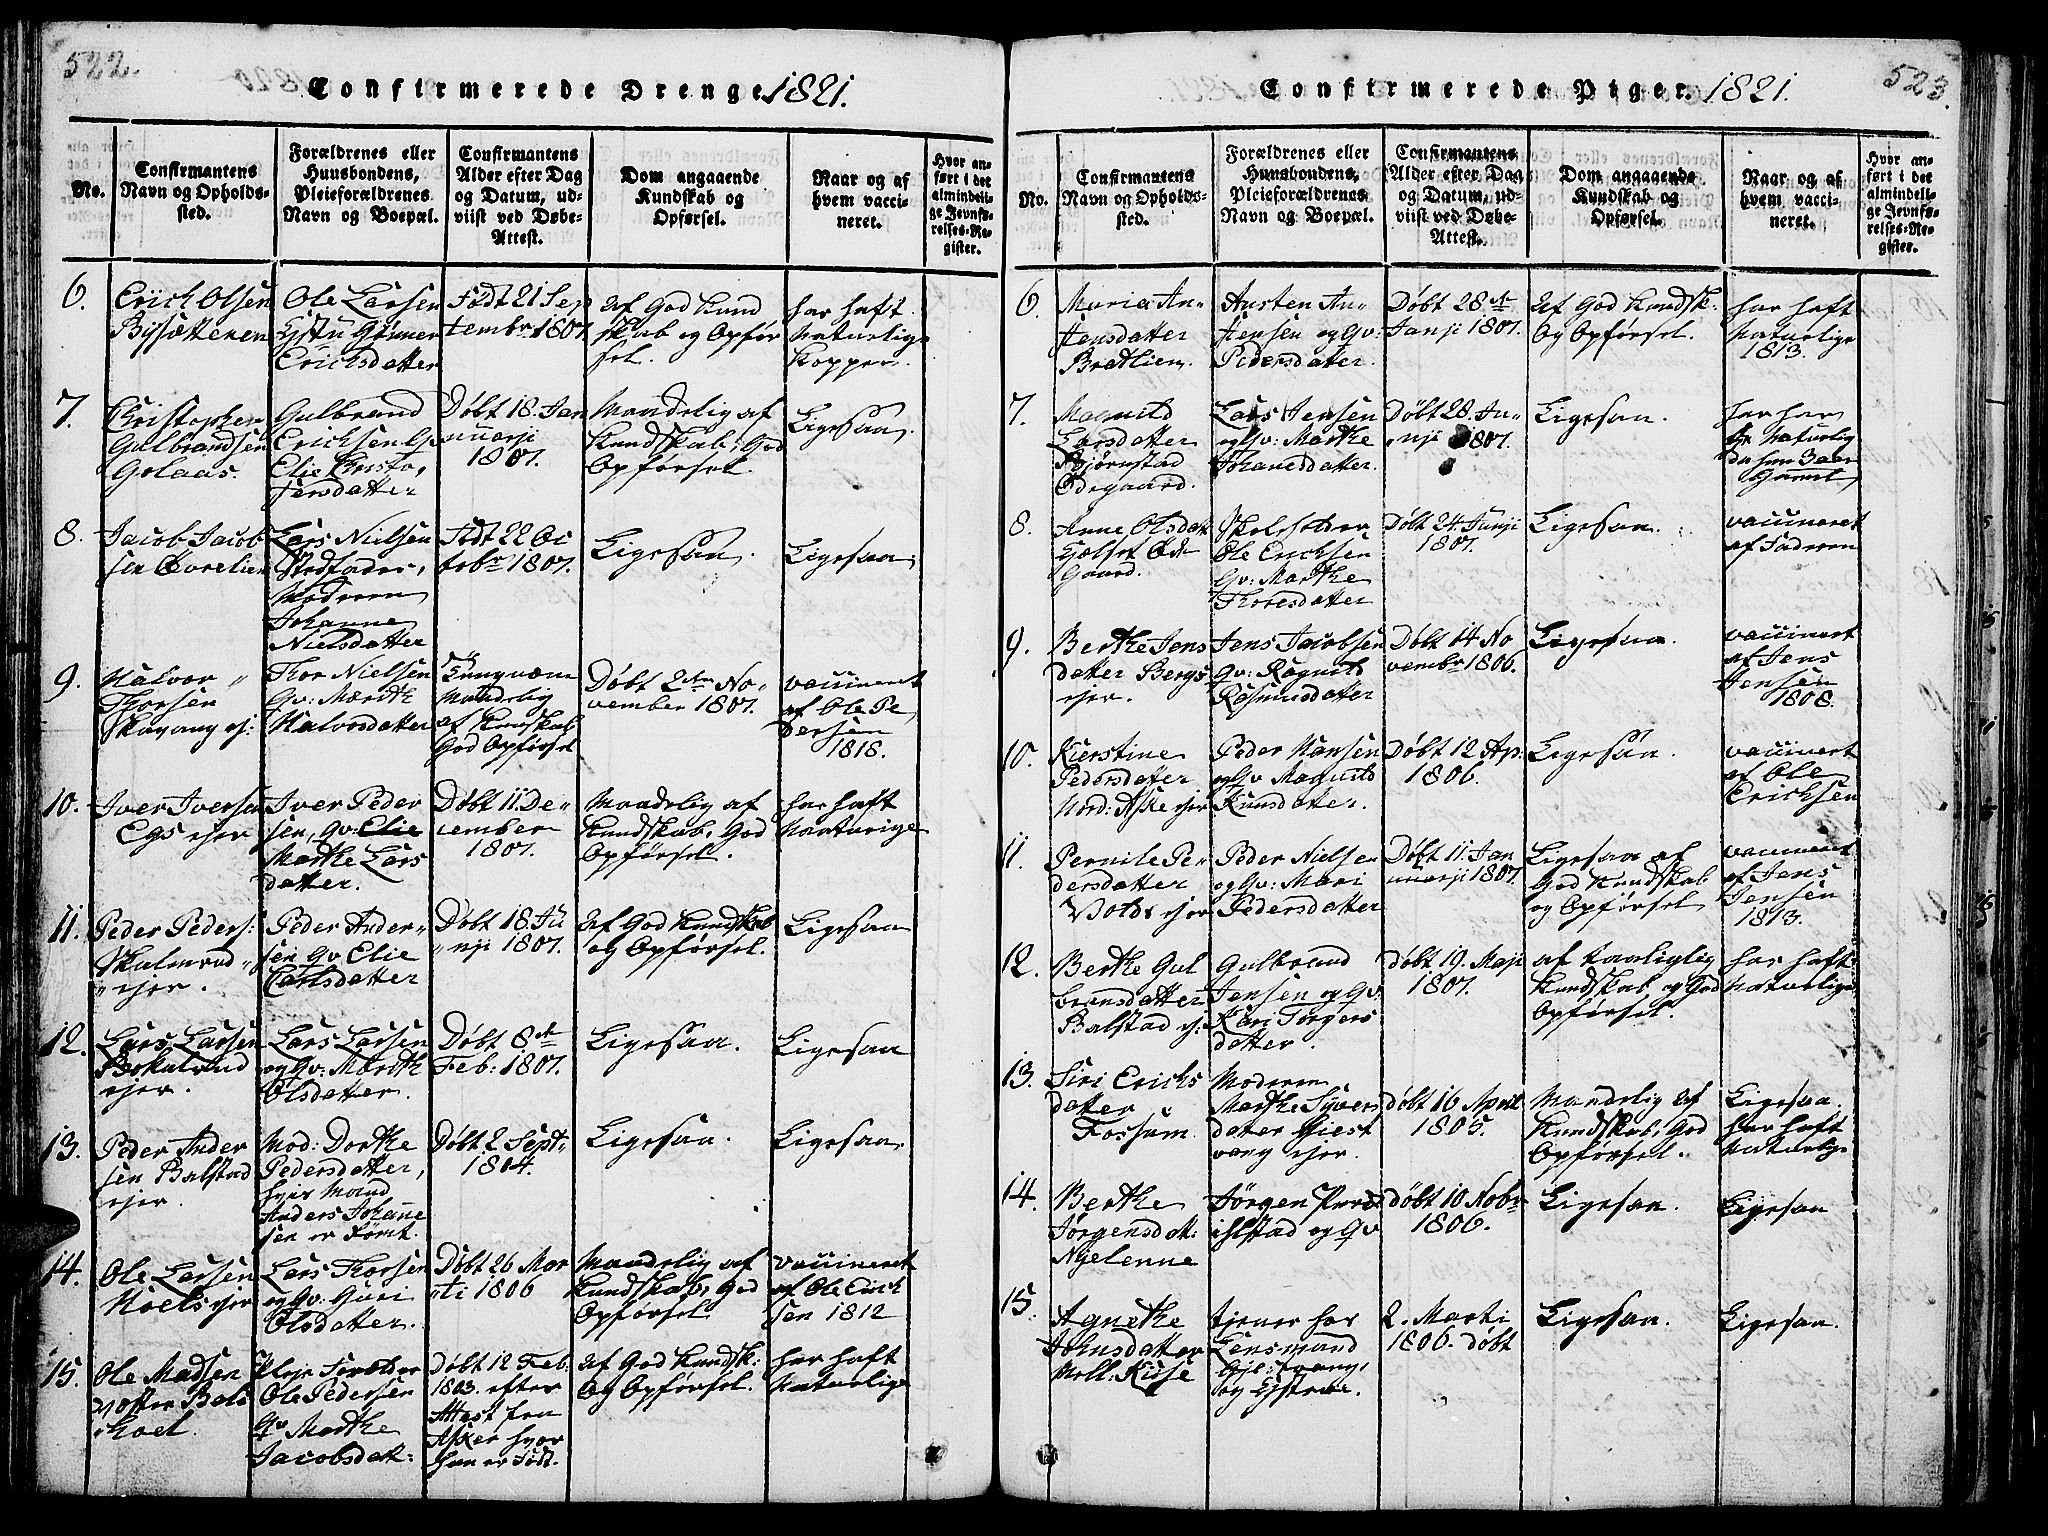 522.
Confirmerede Drenge 1821.
No.
Confirmantens
Navn og Opholds-
sted.
Forældrenes eller
Huusbondens,
Pleieforældrenes
Navn og Boepæl.
Confirmantens
Alder efter Dag
og Datum, ud-
viist ved Døbe-
Attest.
Dom angaaende
Kundskab og
Opførsel.
Naar og af
hvem vacci-
neret.
Hvor an-
ført i det
almindeli-
ge Jevnfø-
relses-Re-
gister.
6.
Erich Olsen
Ole Larsen
Erichsdatter
Født 21 Sep
tembr 1807
af God Kund
skab og Opfør
sel.
har haft
Naturlige
Kopper.
7.
Christopher
Gulbrandsen
Golaas.
Gulbrand
Erichsen
Elie Christo,
fersdatter
Døbt 18. Jan
nuarji
1807.
Maadelig af
Kundskab, God
Opførsel.
Ligesaa.
8.
Jacob Jacob
sen
Lars Nielsen
Stedfader,
Moderen
Johanne
Nielsdatter
Født 22 Oc
tobr 1807.
Ligesaa.
Ligesaa
9.
Halvor
Thorsen
Thor Nielsen
Gv: Marthe
Halvorsdatter
Maadelig
af Kundskab
God Opførsel
Døbt 2den No„
vember 1807.
vaccineret
af Ole Pe
dersen
1818.
10.
Iver Iversen
Egs ejer
Iver Peder
sen, Gv: Elie
Marthe Lars
datter.
Døbt 11. De„
cember
1807.
Maadelig af
Kundskab, God
Opførsel.
har haft
Naturige
11.
Peder Peders:
Skulerud„
„ejer.
Peder Ander„
sen Gv Elie
Carlsdatter
Døbt 18. Ju
„nji 1807.
af God Kundskab
og Opførsel.
Ligesaa
12.
Lars Larsen
ejer.
Lars Larsen
og Gv: Marithe
Olsdatter.
Døbt 8de
Feb: 1807.
Ligesaa.
Ligesaa
13.
Peder Ander
sen Balstad
ejer.
Mod: Dorthe
Pedersdatter,
hvis Mand
Anders Johane
sen er Rømt.
Døbt 2 Sept„
1804.
Ligesaa.
Ligesaa.
14.
Ole Larsen
Hoels ejer
Lars Thorsen
og Gv: Guri
Olsdatter.
Døbt 26 Mar
„ti 1806
Maadelig af
Kundskab, God
Opførsel
vaccineret
af Ole Erich
sen 1812
15.
Ole Madsen
Ole Pedersen
Gv Marthe
Jacobsdatt:
Døbt 12 Feb.
1803. efter
Attest fra
Asker hvor
han er Født.
af God Kundsk:
og Opførsel.
har haft
Naturlige
523.
Confirmerede Piger. 1821.
No.
Confirmantens
Navn og Opholds-
sted.
Forældrenes eller
Huusbondens,
Pleieforældrenes
Navn og Boepæl.
Confirmantens
Alder efter Dag
og Datum, ud-
viist ved Døbe-
Attest.
Dom angaaende
Kundskab og
Opførsel.
Naar og af
hvem vacci-
neret.
Hvor an-
ført i det
almindeli-
ge Jevnfø-
relses-Re-
gister.
6.
Maria An„
stensdatter
Bratlien.
Austen An„
stensen og Gv:
Pedersdatter.
Døbt 28de
Junji 1807.
af God Kundsk:
Og Opførsel.
har haft
Naturlige
1813.
7.
Magnild
Larsdatter
Bjørnstad
Ødegaard.
Lars Jensen
og Gv: Marthe
Johansdatter.
Døbt 28. Ju„
„nji 1807.
Ligesaa.
Naturlig
Gammel
8.
Anne Olsdatt
Gaard.
Skoleholder
Ole Erichsen
Gv: Marthe
Thoresdatter
Døbt 24. Junji
1807.
Ligesaa.
vaccineret
af Faderen
9.
Berthe Jens
datter Bergs
ejer.
Jens Jacobsen
Gv: Ragnild
Rasmusdatter
Døbt 14 No
vembr 1806.
Ligesaa.
vaccinert
af Jens
Jensen
1808.
10.
Kierstine
Pedersdatter
Nord: Aske ejer
Peder Hansen
og Gv Magnild
Knusdatter.
Døbt 12 Ap:
1806.
Ligesaa.
vaccinert
af Ole
Erichsen
11.
Pernile Pe„
dersdatter
Volds ejer
Peder Nielsen
og Gv: Mari
Pedersdatter
Døbt 11. Jan
nuarji 1807.
Ligesaa af
God Kundskab
og Opførsel
vaccineret
af Jens
Jensen
1813.
12.
Berthe Gul
bransdatter
Balstad ej:
Gulbrand
Jensen og Gv:
Kari Torgers
datter.
døbt 19. Maji
1807.
af taaliglig
Kundskab og God
Opførsel.
har haft
Naturlige
13.
Siri Erichs
datter
Fossum
Moderen
Marthe Syvers
datter Hiest
vang ejer.
døbt 16 April
1805.
Maadelig af
Kundskab, God
Opførsel.
Ligesaa.
har haft
Naturlige
14.
Berthe
Jørgensdatt:
Nyelenne
Jørgen
ihlstad og Gv
døbt 10 Nobr
1806.
Ligesaa.
Ligesaa
15.
Agnethe
Johnsdatter
tjener hos
Lensmand
2. Marti
1806. døbt
Ligesaa.
Ligesaa.